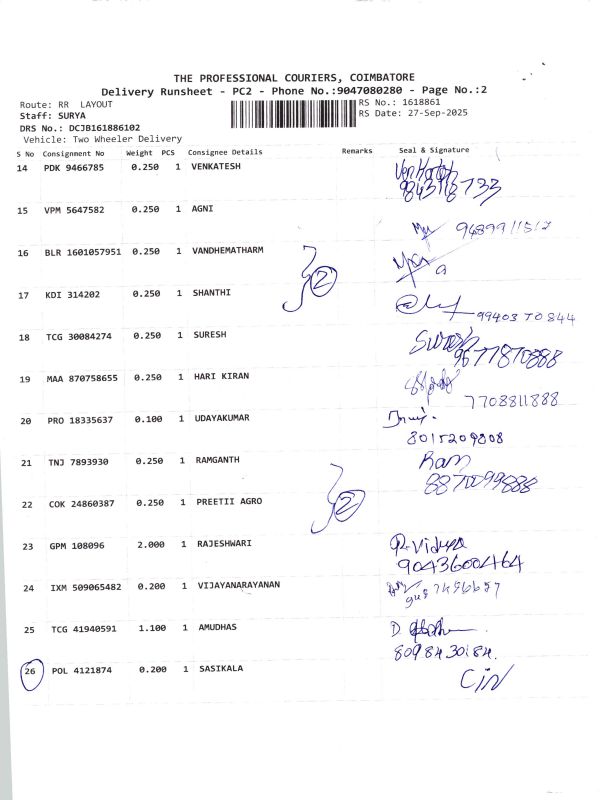 THE PROFESSIONAL COURIERS, COIMBATORE
Delivery Runsheet - PC2 - Phone No.:9047080280 - Page No.:2
Route: RR LAYOUT
RS No.: 1618861
Staff: SURYA
RS Date: 27-Sep-2025
DRS No.: DCJB161886102
Vehicle: Two Wheeler Delivery
S No Consignment No Weight PCS Consignee Details Remarks Seal & Signature
14 PDK 9466785 0.250 1 VENKATESH
15 VPM 5647582 0.250 1 AGNI
16 BLR 1601057951 0.250 1 VANDHEMATHARM
2
17 KDI 314202 0.250 1 SHANTHI
99403 70844
18 TCG 30084274 0.250 1 SURESH Suresh
9677870888
19 MAA 870758655 0.250 1 HARI KIRAN
7708811888
20 PRO 18335637 0.100 1 UDAYAKUMAR
8015209808
21 TNJ 7893930 0.250 1 RAMGANTH Ram
8870099888
22 COK 24860387 0.250 1 PREETII AGRO 2
23 GPM 108096 2.000 1 RAJESHWARI R. Vidya
9043600464
24 IXM 509065482 0.200 1 VIJAYANARAYANAN
25 TCG 41940591 1.100 1 AMUDHAS D.
8098430184
26 POL 4121874 0.200 1 SASIKALA